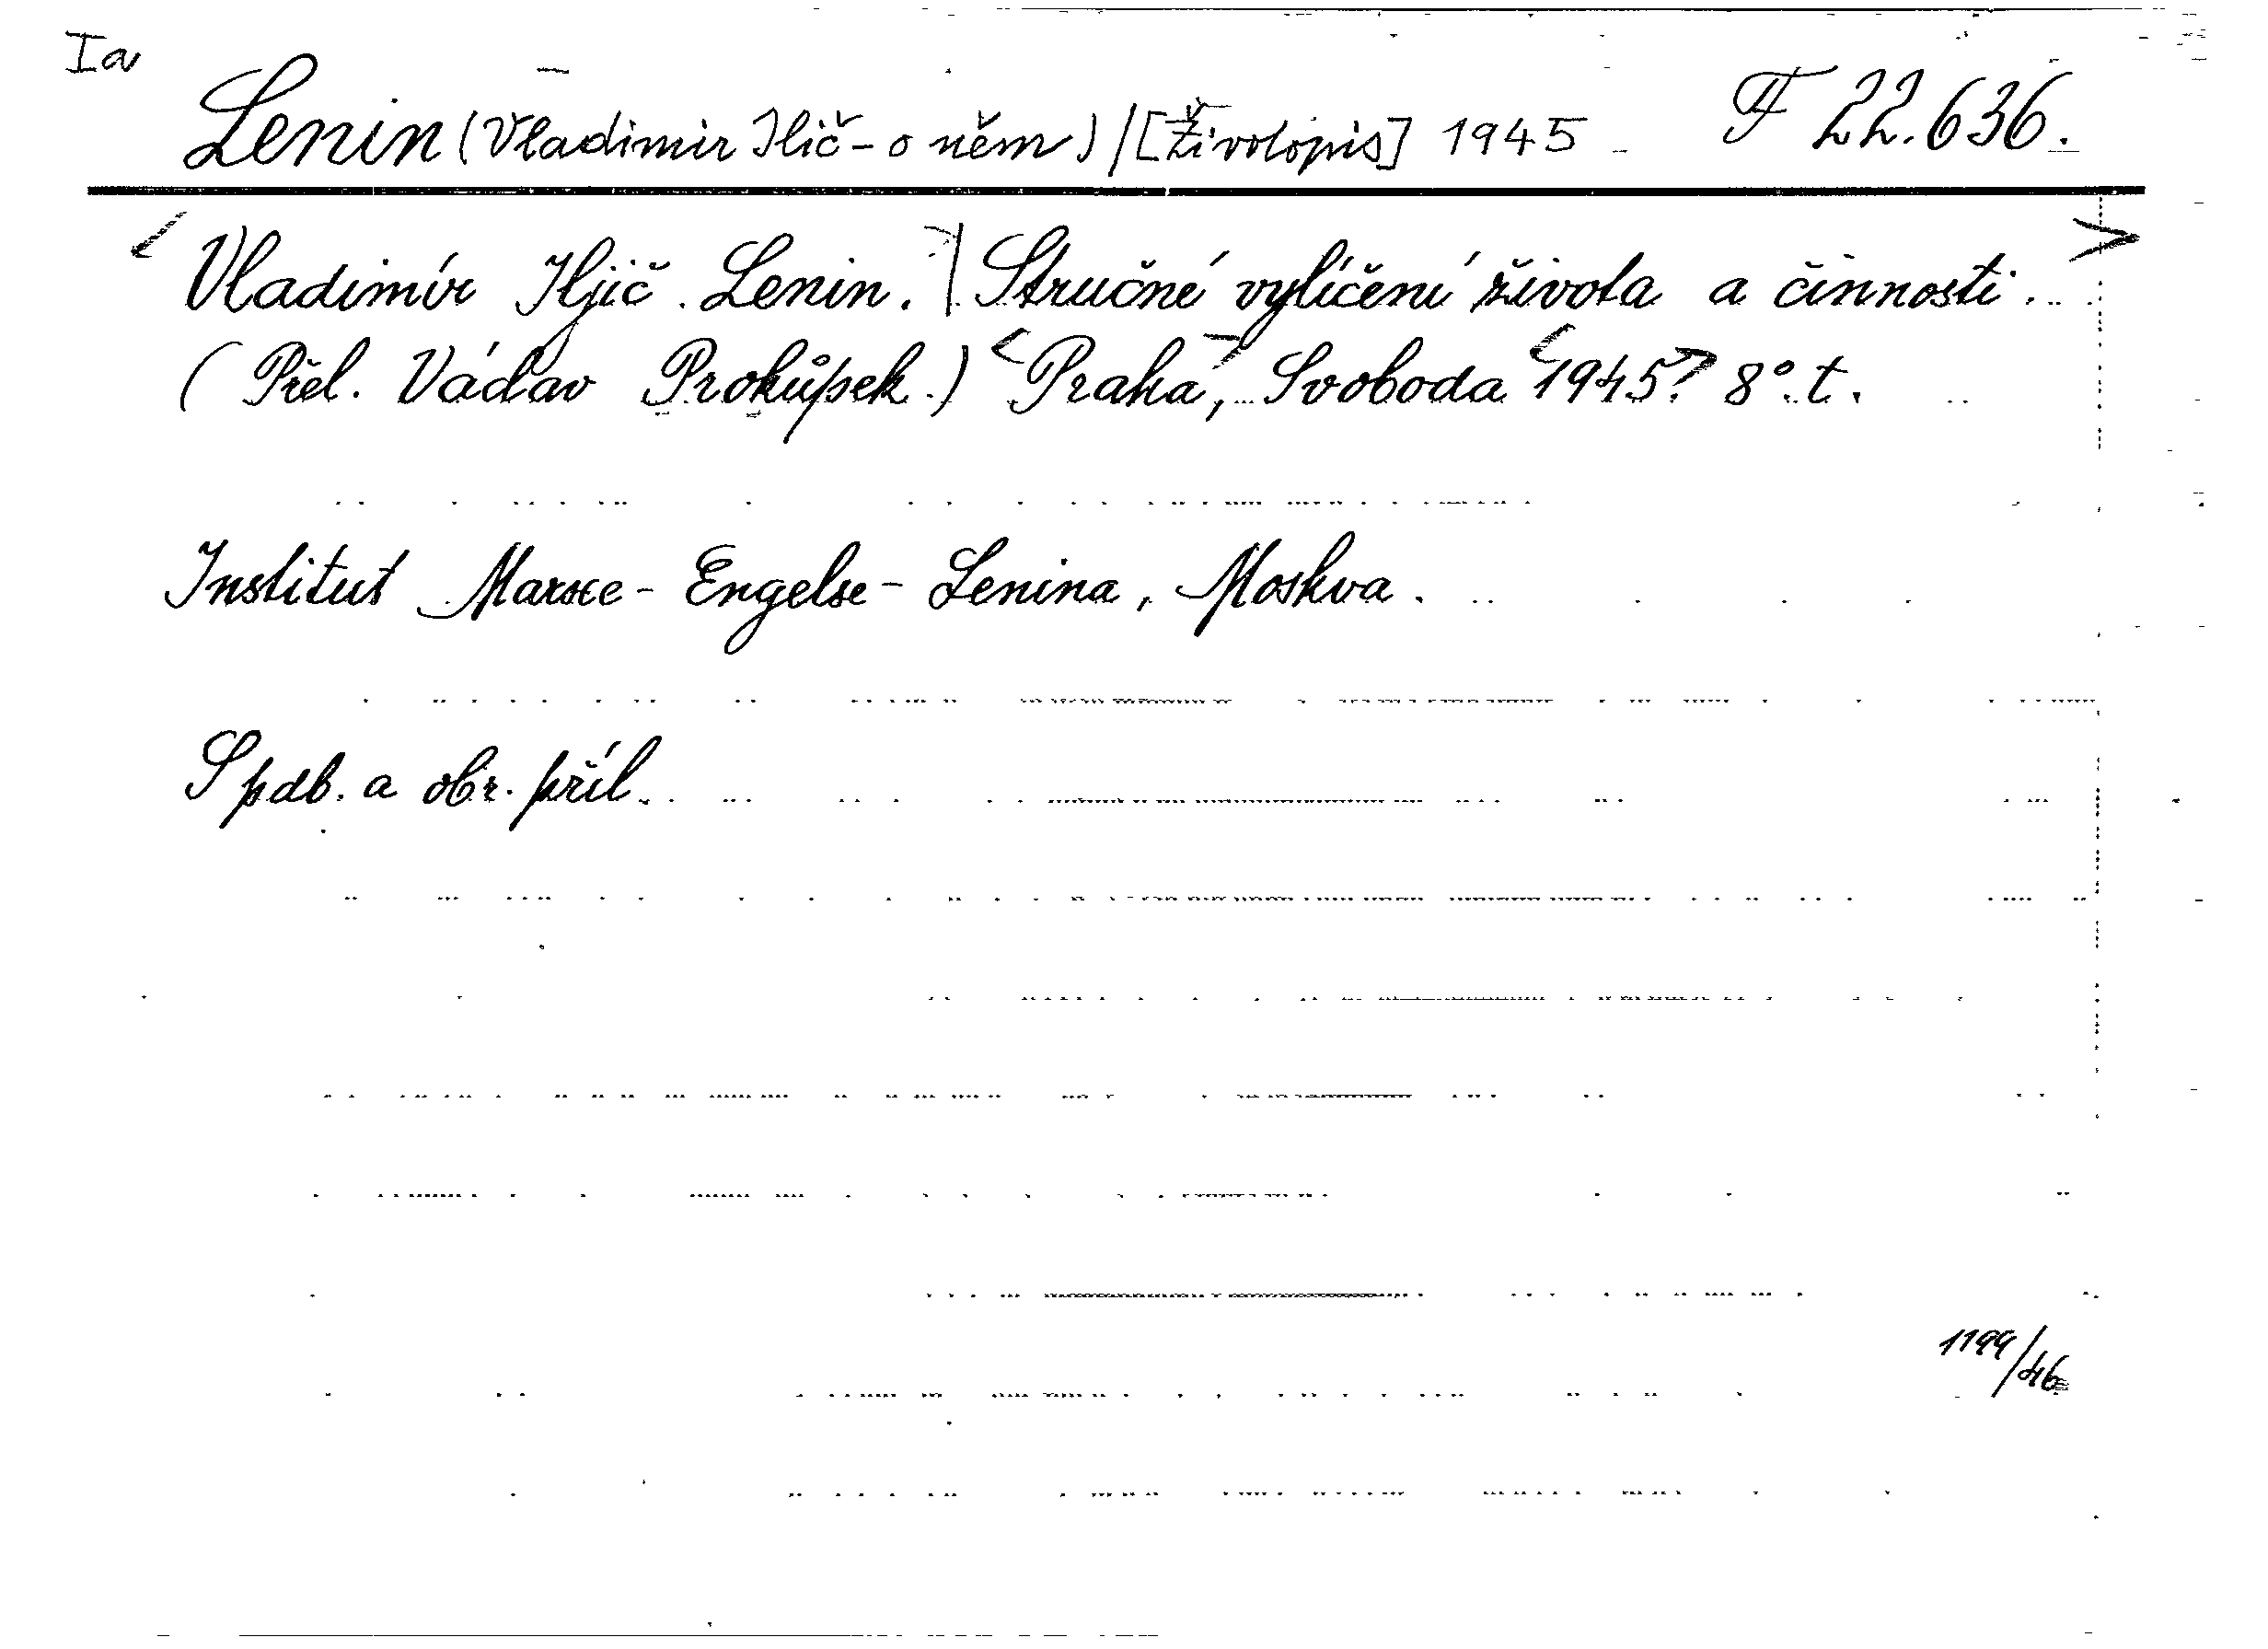 Ia
Lenin (Vladimir Ilič - o něm) | [Životopis] 1945 F 22.636.
<Vladimír Iljič Lenin.>| Stručné vylíčení života a činnosti.>
(Přel. Václav Prokůpek.) <Praha>, Svoboda <1945> 8°. t.
Institut Marxe - Engelse - Lenina, Moskva.
S pdb. a obr. příl.
1199/46